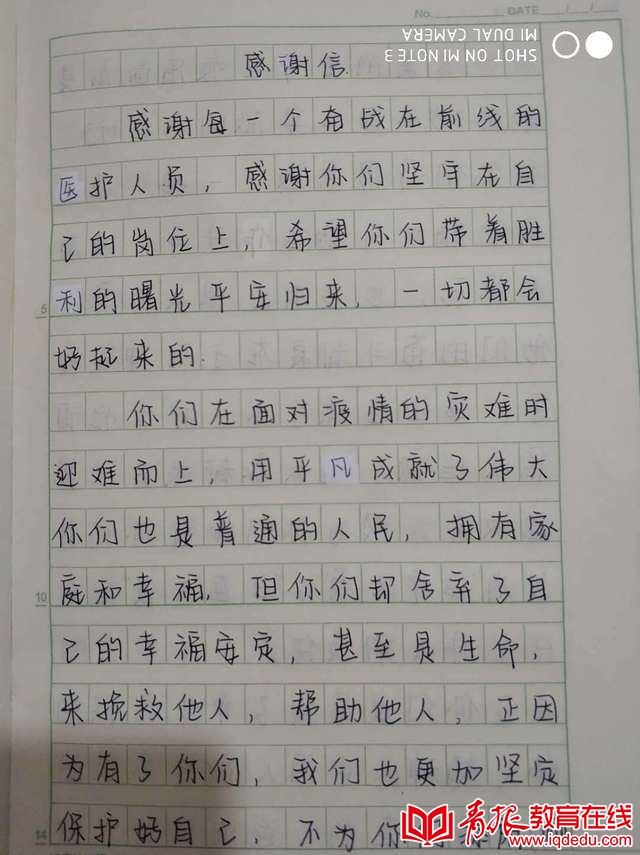 No. DATE / /
SHOT ON MI NOTE3
MI DUAL CAMERA
感谢信
感谢每一个奋战在前线的
医护人员，感谢你们坚守在自
己的岗位上，希望你们带着胜
利的曙光平安归来，一切都会
5
好起来的.
你们在面对疫情的灾难时
迎难而上，用平凡成就了伟大
你们也是普通的人民，拥有家
庭和幸福，但你们却舍弃了自
10
己的幸福安定，甚至是生命，
来挽救他人，帮助他人，正因
为有了你们，我们也更加坚定
保护好自己，不为你
14
青报教育在线
www.iqdedu.com